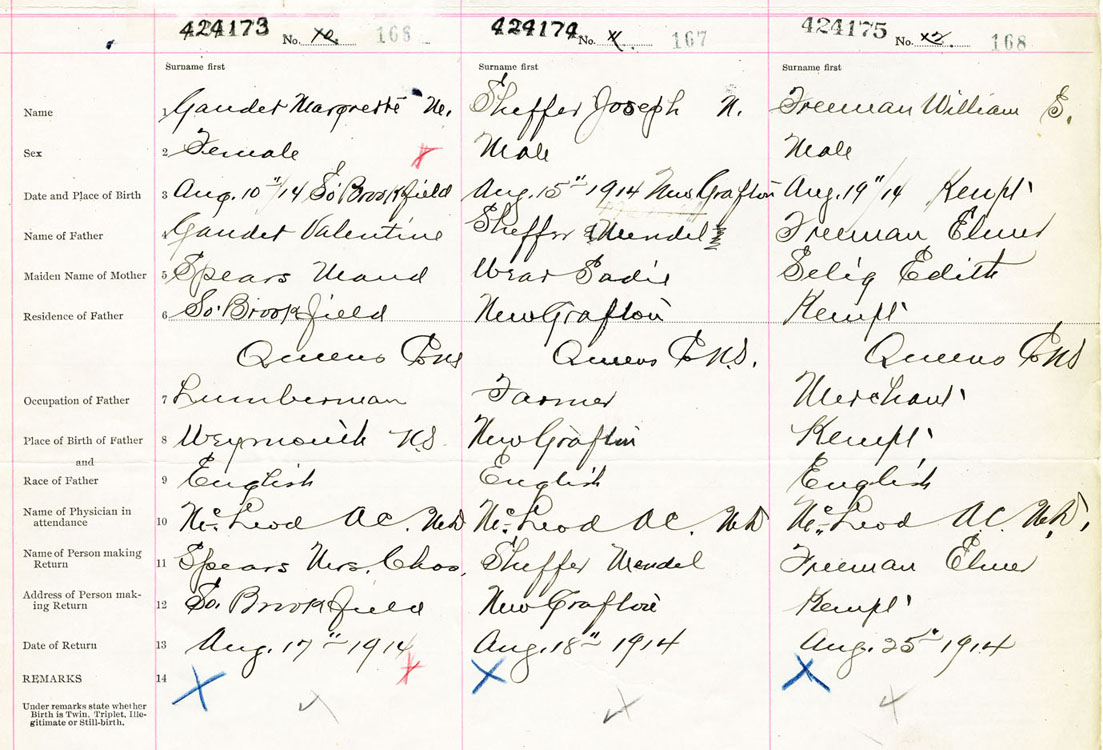 424173 424174 424175
No. 10. 166 No. 11. 167 No. 12. 168
Surname first Surname first Surname first
Name 1 Gaudet Margrette M. Sheffer Joseph N. Freeman William S.
Sex 2 Female Male Male
Date and Place of Birth 3 Aug. 10"/14 So. Brookfield Aug. 15" 1914 New Grafton Aug. 19"/14 Kempt
Name of Father 4 Gaudet Valentine Sheffer Mendel Freeman Elmer
Maiden Name of Mother 5 Spears Maud Wear Sadie Selig Edith
Residence of Father 6 So. Brookfield New Grafton Kempt
Queens Co NS Queens Co N.S. Queens Co NS
Occupation of Father 7 Lumberman Farmer Merchant
Place of Birth of Father 8 Weymouth N.S. New Grafton Kempt
and
Race of Father 9 English English English
Name of Physician in
attendance 10 Mc Leod A.C. M.D. Mc Leod A.C. M.D. Mc Leod A.C. M.D.
Name of Person making
Return 11 Spears Mrs. Chas. Sheffer Mendel Freeman Elmer
Address of Person mak-
ing Return 12 So. Brookfield New Grafton Kempt
Date of Return 13 Aug. 17" 1914 Aug. 18" 1914 Aug. 25" 1914
REMARKS 14
Under remarks state whether
Birth is Twin, Triplet, Ille-
gitimate or Still-birth.